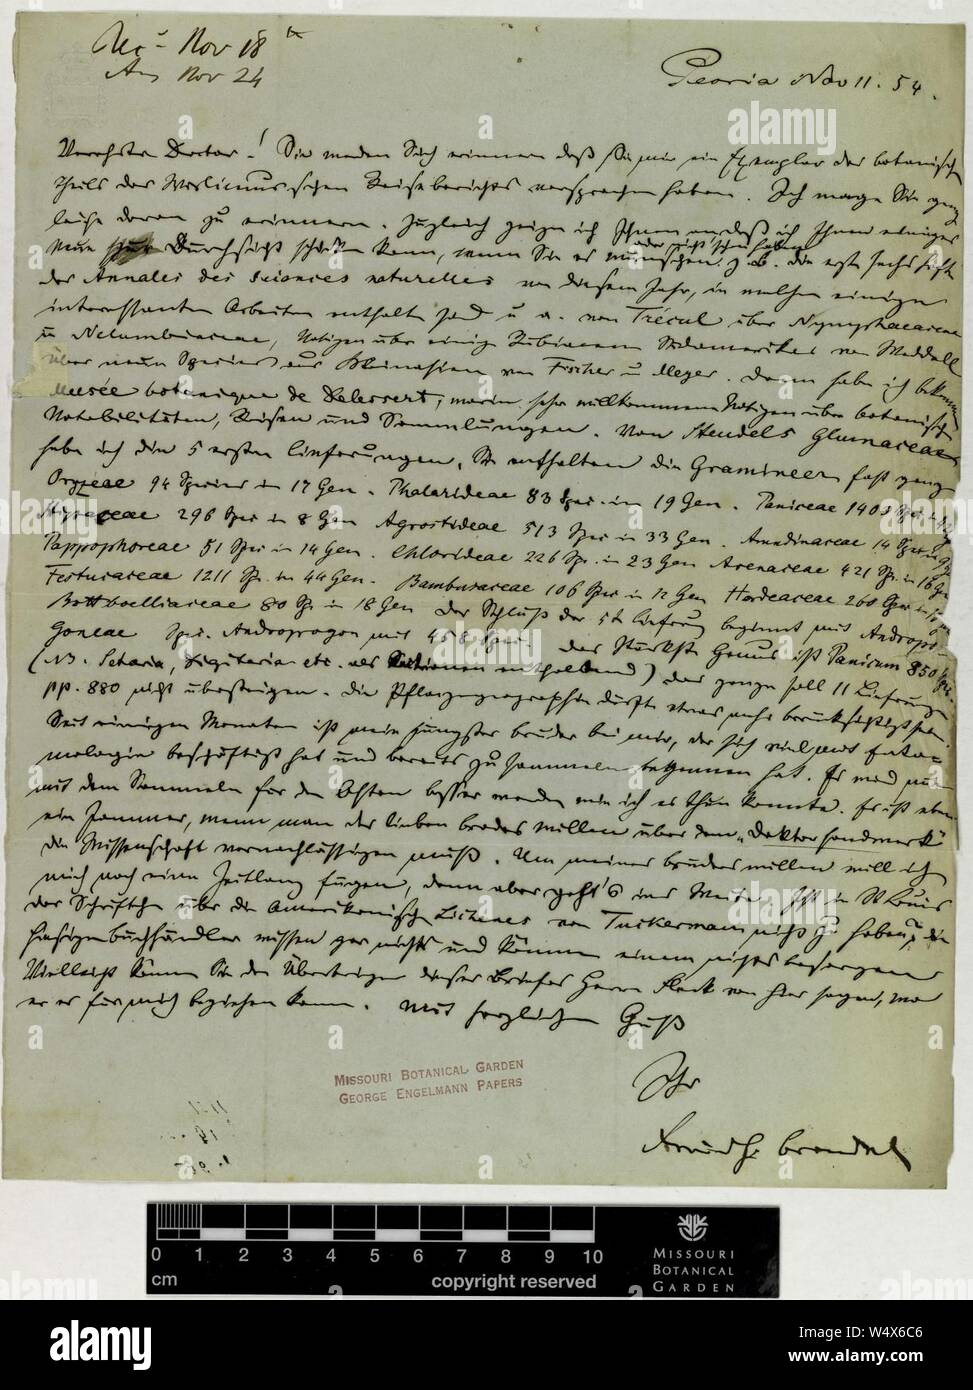 Rec. Nov 18th
Ans Nov 24
Peoria Nov 11. 54.
Verehrter Doctor! Sie werden Sich erinnern daß Sie mir ein Exemplar des botanischen
Theils des Wislicenus'schen Reiseberichts versprochen haben. Ich wage Sie ganz
leise daran zu erinnern. Zugleich zeige ich Ihnen an, daß ich Ihnen einiges
Neue zur Durchsicht schicken kann, wenn Sie es wünschen oder nicht schon haben z. B. die erst sechs Heft
der Annales des Sciences naturelles von diesem Jahr, in welchen einige
interessanten Arbeiten enthalten sind u. a. von Trécul über Nymphaeaceae
u Nelumbiaceae, Notizen über einige Rubiaceen Südamerikas von Weddell
über neue Species aus Kleinasien von Fischer u Meyer. Dann habe ich bekommen
Musée botanique de Delessert, worin sehr willkommene Notizen über botanische
Notabilitäten, Reisen und Sammlungen. Von Steudels Glumaceae
habe ich die 5 ersten Lieferungen. Sie enthalten die Gramineen fast ganz
Oryzeae 94 Species in 17 Gen. Phalarideae 83 Spec. in 19 Gen. Paniceae 1403 Spec in
Stipaceae 296 Spec in 8 Gen Agrostideae 513 Spec in 33 Gen. Arundinaceae 14 Spec in
Pappophoreae 51 Spec in 14 Gen. Chlorideae 226 Sp. in 23 Gen Avenaceae 421 Sp. in 16 Gen
Festucaceae 1211 Sp. in 44 Gen. Bambusaceae 106 Spec in 12 Gen Hordeaceae 260 Spec in
Rottboelliaceae 80 Sp in 18 Gen Der Schluß der 5t Lieferung beginnt mit Andropo-
goneae Spec. Andropogon mit 458 Spec. Das stärkste Genus ist Panicum 850 Spec.
(NB. Setaria, Digitaria etc. als Sectionen enthaltend) Das ganze soll 11 Lieferungen
pp. 880 nicht übersteigen. Die Pflanzengeographie dürfte etwas mehr berücksichtigt sein.
Seit einigen Monaten ist mein jüngster Bruder bei mir, der sich viel mit Ento-
mologie beschäftigt hat und bereits zu sammeln begonnen hat. Er wird nun
mit dem Sammeln für den Osten besser werden wie ich es thun konnte. Es ist eben
ein Jammer, wenn man des lieben Brodes willen über dem „Doktorhandwerk“
die Wissenschaft vernachlässigen muß. Um meines Bruders willen will ich
mich noch eine Zeitlang fügen, dann aber geht's ins Weite. Ist in St Louis
das Schriftchen über die Amerikanische Lichenes von Tuckermann nicht zu haben? die
hiesigen Buchhändler wissen gar nichts und können einem nichts besorgen
Vielleicht können Sie den Überbringer dieses Briefes Herrn Fleck von hier sagen, wo
er es für mich beziehen kann. Mit herzlichem Gruß
Ihr
Friedr. Brendel
MISSOURI BOTANICAL GARDEN
GEORGE ENGELMANN PAPERS
0 1 2 3 4 5 6 7 8 9 10
cm
copyright reserved
MISSOURI
BOTANICAL
GARDEN
alamy
Image ID: W4X6C6
www.alamy.com